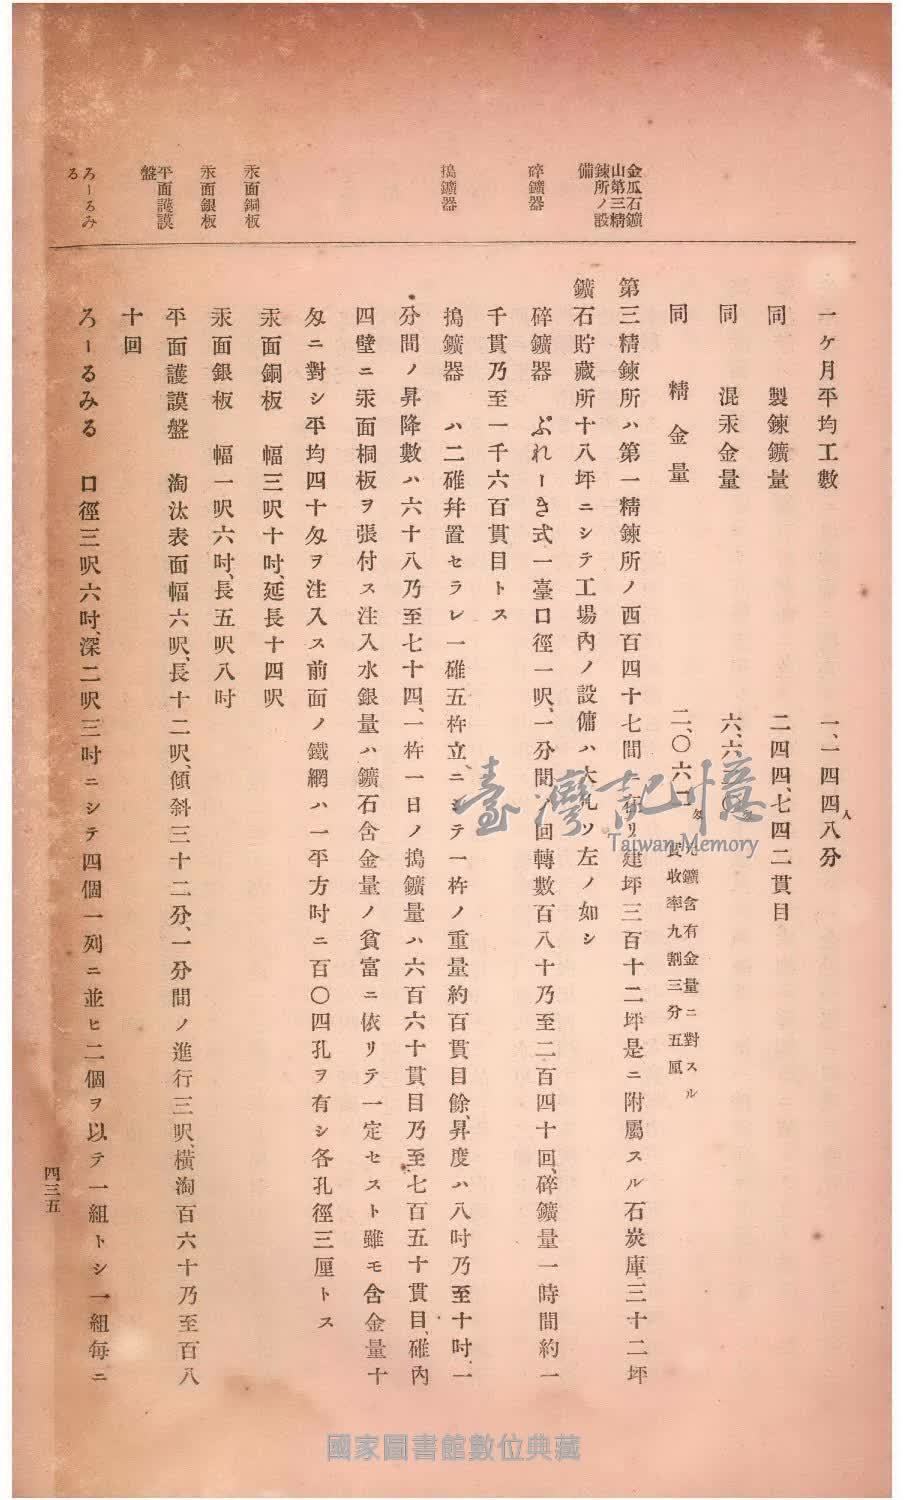 金瓜石鑛
山第三精
鍊所ノ設
備
碎鑛器
搗鑛器
汞面銅板
汞面銀板
平面護謨
盤
ろーるみ
る
一ケ月平均工數 一、一四四人八分
同 製鍊鑛量 二四四、七四二貫目
同 混汞金量 六、六
同 精金量 二、〇六 匁 鑛含有金量ニ對スル
收率九割三分五厘
第三精鍊所ハ第一精鍊所ノ西百四十七間ニ在リ建坪三百十二坪是ニ附屬スル石炭庫三十二坪
鑛石貯藏所十八坪ニシテ工場內ノ設備ハ大凡ソ左ノ如シ
碎鑛器 ぶれーき式一臺口徑一呎、一分間ノ回轉數百八十乃至二百四十回、碎鑛量一時間約一
千貫乃至一千六百貫目トス
搗鑛器 ハ二碓幷置セラレ一碓五杵立ニシテ一杵ノ重量約百貫目餘、昇度ハ八吋乃至十吋、一
分間ノ昇降數ハ六十八乃至七十四、一杵一日ノ搗鑛量ハ六百六十貫目乃至七百五十貫目、碓內
四壁ニ汞面桐板ヲ張付ス注入水銀量ハ鑛石含金量ノ貧富ニ依リテ一定セスト雖モ含金量十
匁ニ對シ平均四十匁ヲ注入ス前面ノ鐵網ハ一平方吋ニ百〇四孔ヲ有シ各孔徑三厘トス
汞面銅板 幅三呎十吋、延長十四呎
汞面銀板 幅一呎六吋、長五呎八吋
平面護謨盤 淘汰表面幅六呎、長十二呎、傾斜三十二分、一分間ノ進行三呎、橫淘百六十乃至百八
十回
ろーるみる 口徑三呎六吋、深二呎三吋ニシテ四個一列ニ並ヒ二個ヲ以テ一組トシ一組每ニ
四三五
臺灣記憶
Taiwan Memory
國家圖書館數位典藏